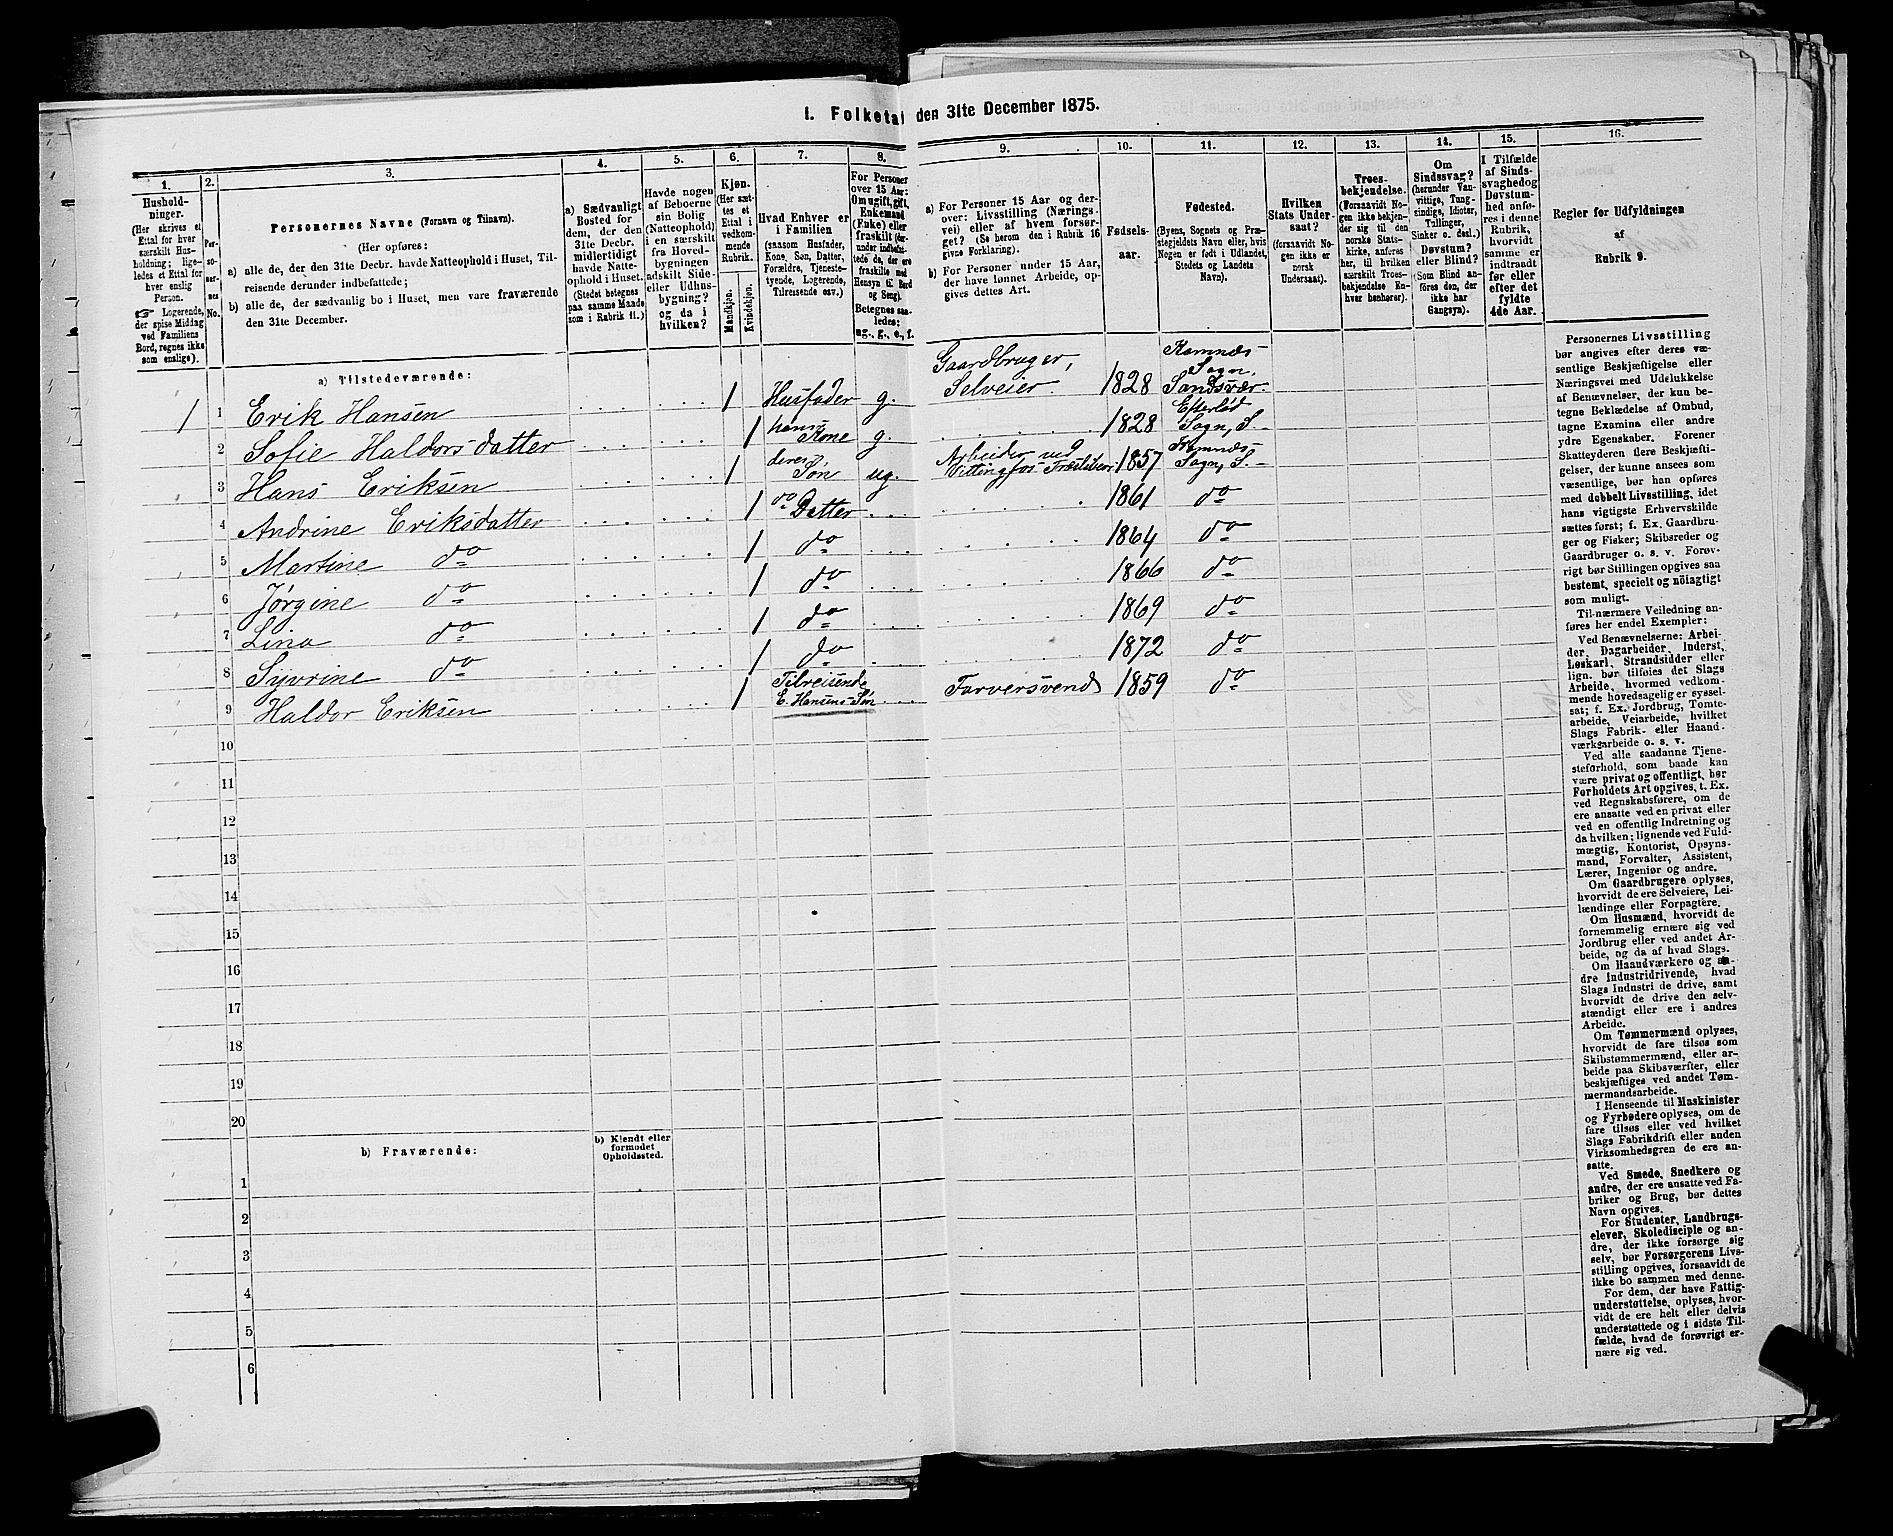 1. Folketal den 31te December 1875.
1.
2.
3.
4.
5.
6.
7.
8.
9.
10.
11.
12.
13.
14.
15.
16.
Hushold-
ninger.
(Her skrives et
Ettal for hver
særskilt Hus-
holdning; lige-
ledes et Ettal for
hver enslig
Person.
☞ Logerende,
der spise Middag
ved Familiens
Bord, regnes ikke
som enslige).
Per-
so-
ner-
nes
No.
Personernes Navne (Fornavn og Tilnavn).
(Her opføres:
a) alle de, der den 31te Decbr. havde Natteophold i Huset, Til-
reisende derunder indbefattede;
b) alle de, der sædvanlig bo i Huset, men vare fraværende
den 31te December.
a) Sædvanligt
Bosted for
dem, der den
31te Decbr.
midlertidigt
havde Natte-
ophold i Huset.
(Stedet betegnes
paa samme Maade
som i Rubrik 11.)
Havde nogen
af Beboerne
sin Bolig
(Natteophold)
i en særskilt
fra Hoved-
bygningen
adskilt Side-
eller Udhus-
bygning?
og da i
hvilken?
Kjøn.
(Her sæt-
tes et
Ettal i
vedkom-
mende
Rubrik.
Mandkjøn.
Kvindekjøn.
Hvad Enhver er
i Familien
(saasom Husfader,
Kone, Søn, Datter,
Forældre, Tjeneste-
tyende, Logerende,
Tilreisende osv.)
For Personer
over 15 Aar:
Om ugift, gift,
Enkemand
(Enke) eller
fraskilt (her-
under indbefat-
tede de, der ere
fraskilte med
Hensyn til Bord
og Seng).
Betegnes saa-
ledes:
ug., g., e., f.
a) For Personer 15 Aar og der-
over: Livsstilling (Nærings-
vei) eller af hvem forsør-
get? (Se herom den i Rubrik 16
givne Forklaring).
b) For Personer under 15 Aar,
der have lønnet Arbeide, op-
gives dettes Art.
Fødsels-
aar.
Fødested.
(Byens, Sognets og Præ-
stegjeldets Navn eller, hvis
Nogen er født i Udlandet,
Stedets og Landets
Navn).
Hvilken
Stats Under-
saat?
(forsaavidt No-
gen ikke er
norsk
Undersaat).
Troes-
bekjendelse.
(Forsaavidt No-
gen ikke bekjen-
der sig til den
norske Stats-
kirke, anføres
her, til hvilken
særskilt Troes-
bekjendelse En-
hver henhører).
Om
Sindssvag?
(herunder Van-
vittige, Tung-
sindige, Idioter,
Tullinger,
Sinker o. desl.)
Døvstum?
eller Blind?
(Som Blind an-
føres den, der
ikke har
Gangsyn).
I Tilfælde
af Sinds-
svaghed og
Døvstum-
hed anfø-
res i denne
Rubrik,
hvorvidt
samme er
indtraadt
før eller
efter det
fyldte
4de Aar.
Regler for Udfyldningen
af
Rubrik 9.
a) Tilstedeværende:
1 1 Erik Hansen 1 Husfader g. Gaardbruger, Selveier 1828 Komnæs Sogn, Sandsvær.
2 Sofie Haldorsdatter 1 hans Kone g. 1828 Eftelød Sogn, S.
3 Hans Eriksen 1 deres Søn ug. Arbeider ved Vittingfos Træsliberi 1857 Komnæs Sogn, S.
4 Andrine Eriksdatter 1 do Datter 1861 do
5 Martine do 1 do 1864 do
6 Jørgine do 1 do 1866 do
7 Lina do 1 do 1869 do
8 Syvrine do 1 do 1872 do
9 Haldor Eriksen 1 Tilreisende E. Hansens Søn Farversvend 1859 do
10
11
12
13
14
15
16
17
18
19
20
b) Fraværende:
b) Kjendt eller
formodet
Opholdssted.
1
2
3
4
5
6
Personernes Livsstilling
bør angives efter deres væ-
sentlige Beskjæftigelse eller
Næringsvei med Udelukkelse
af Benævnelser, der kun be-
tegne Beklædelse af Ombud,
tagne Examina eller andre
ydre Egenskaber. Forener
Skatteyderen flere Beskjæfti-
gelser, der kunne ansees som
væsentlige, bør han opføres
med dobbelt Livsstilling, idet
hans vigtigste Erhvervskilde
sættes først; f. Ex. Gaardbru-
ger og Fisker; Skibsreder og
Gaardbruger o. s. v. Forøv-
rigt bør Stillingen opgives saa
bestemt, specielt og nöiagtigt
som muligt.
Til nærmere Veiledning an-
føres her endel Exempler:
Ved Benævnelserne: Arbei-
der, Dagarbeider, Inderst,
Løskarl, Strandsidder eller
lign. bør tilføies det Slags
Arbeide, hvormed vedkom-
mende hovedsagelig er syssel-
sat; f. Ex. Jordbrug, Tomte-
arbeide, Veiarbeide, hvilket
Slags Fabrik- eller Haand-
værksarbeide o. s. v.
Ved alle saadanne Tjene-
steforhold, som baade kan
være privat og offentligt, bør
Forholdets Art opgives, t. Ex.
ved Regnskabsførere, om de
ere ansatte ved en privat eller
ved en offentlig Indretning og
da hvilken; lignende ved Fuld-
mægtig, Kontorist, Opsyns-
mand, Forvalter, Assistent,
Lærer, Ingeniør og andre.
Om Gaardbrugere oplyses,
hvorvidt de ere Selveiere, Lei-
lændinge eller Forpagtere.
Om Husmænd, hvorvidt de
fornemmelig ernære sig ved
Jordbrug eller ved andet Ar-
beide, og da af hvad Slags.
Om Haandværkere og an-
dre Industridrivende, hvad
Slags Industri de drive, samt
hvorvidt de drive den selv-
stændigt eller ere i andres
Arbeide.
Om Tømmermænd oplyses,
hvorvidt de fare tilsøs som
Skibstømmermænd, eller ar-
beide paa Skibsværfter, eller
beskjæftiges ved andet Tøm-
mermandsarbeide.
I Henseende til Maskinister
og Fyrbødere oplyses, om de
fare tilsøs eller ved hvilket
Slags Fabrikdrift eller anden
Virksomhedsgren de ere an-
satte.
Ved Smede, Snedkere og
andre, der ere ansatte ved Fa-
briker og Brug, bør dettes
Navn opgives.
For Studenter, Landbrugs-
elever, Skoledisciple og an-
dre, der ikke forsørge sig
selv, bør Forsørgerens Livs-
stilling opgives, forsaavidt de
ikke bo sammen med denne.
For dem, der have Fattig-
understøttelse, oplyses, hvor-
vidt de ere helt eller delvis
understøttede og i sidste Til-
fælde, hvad de forøvrigt er-
nære sig ved.